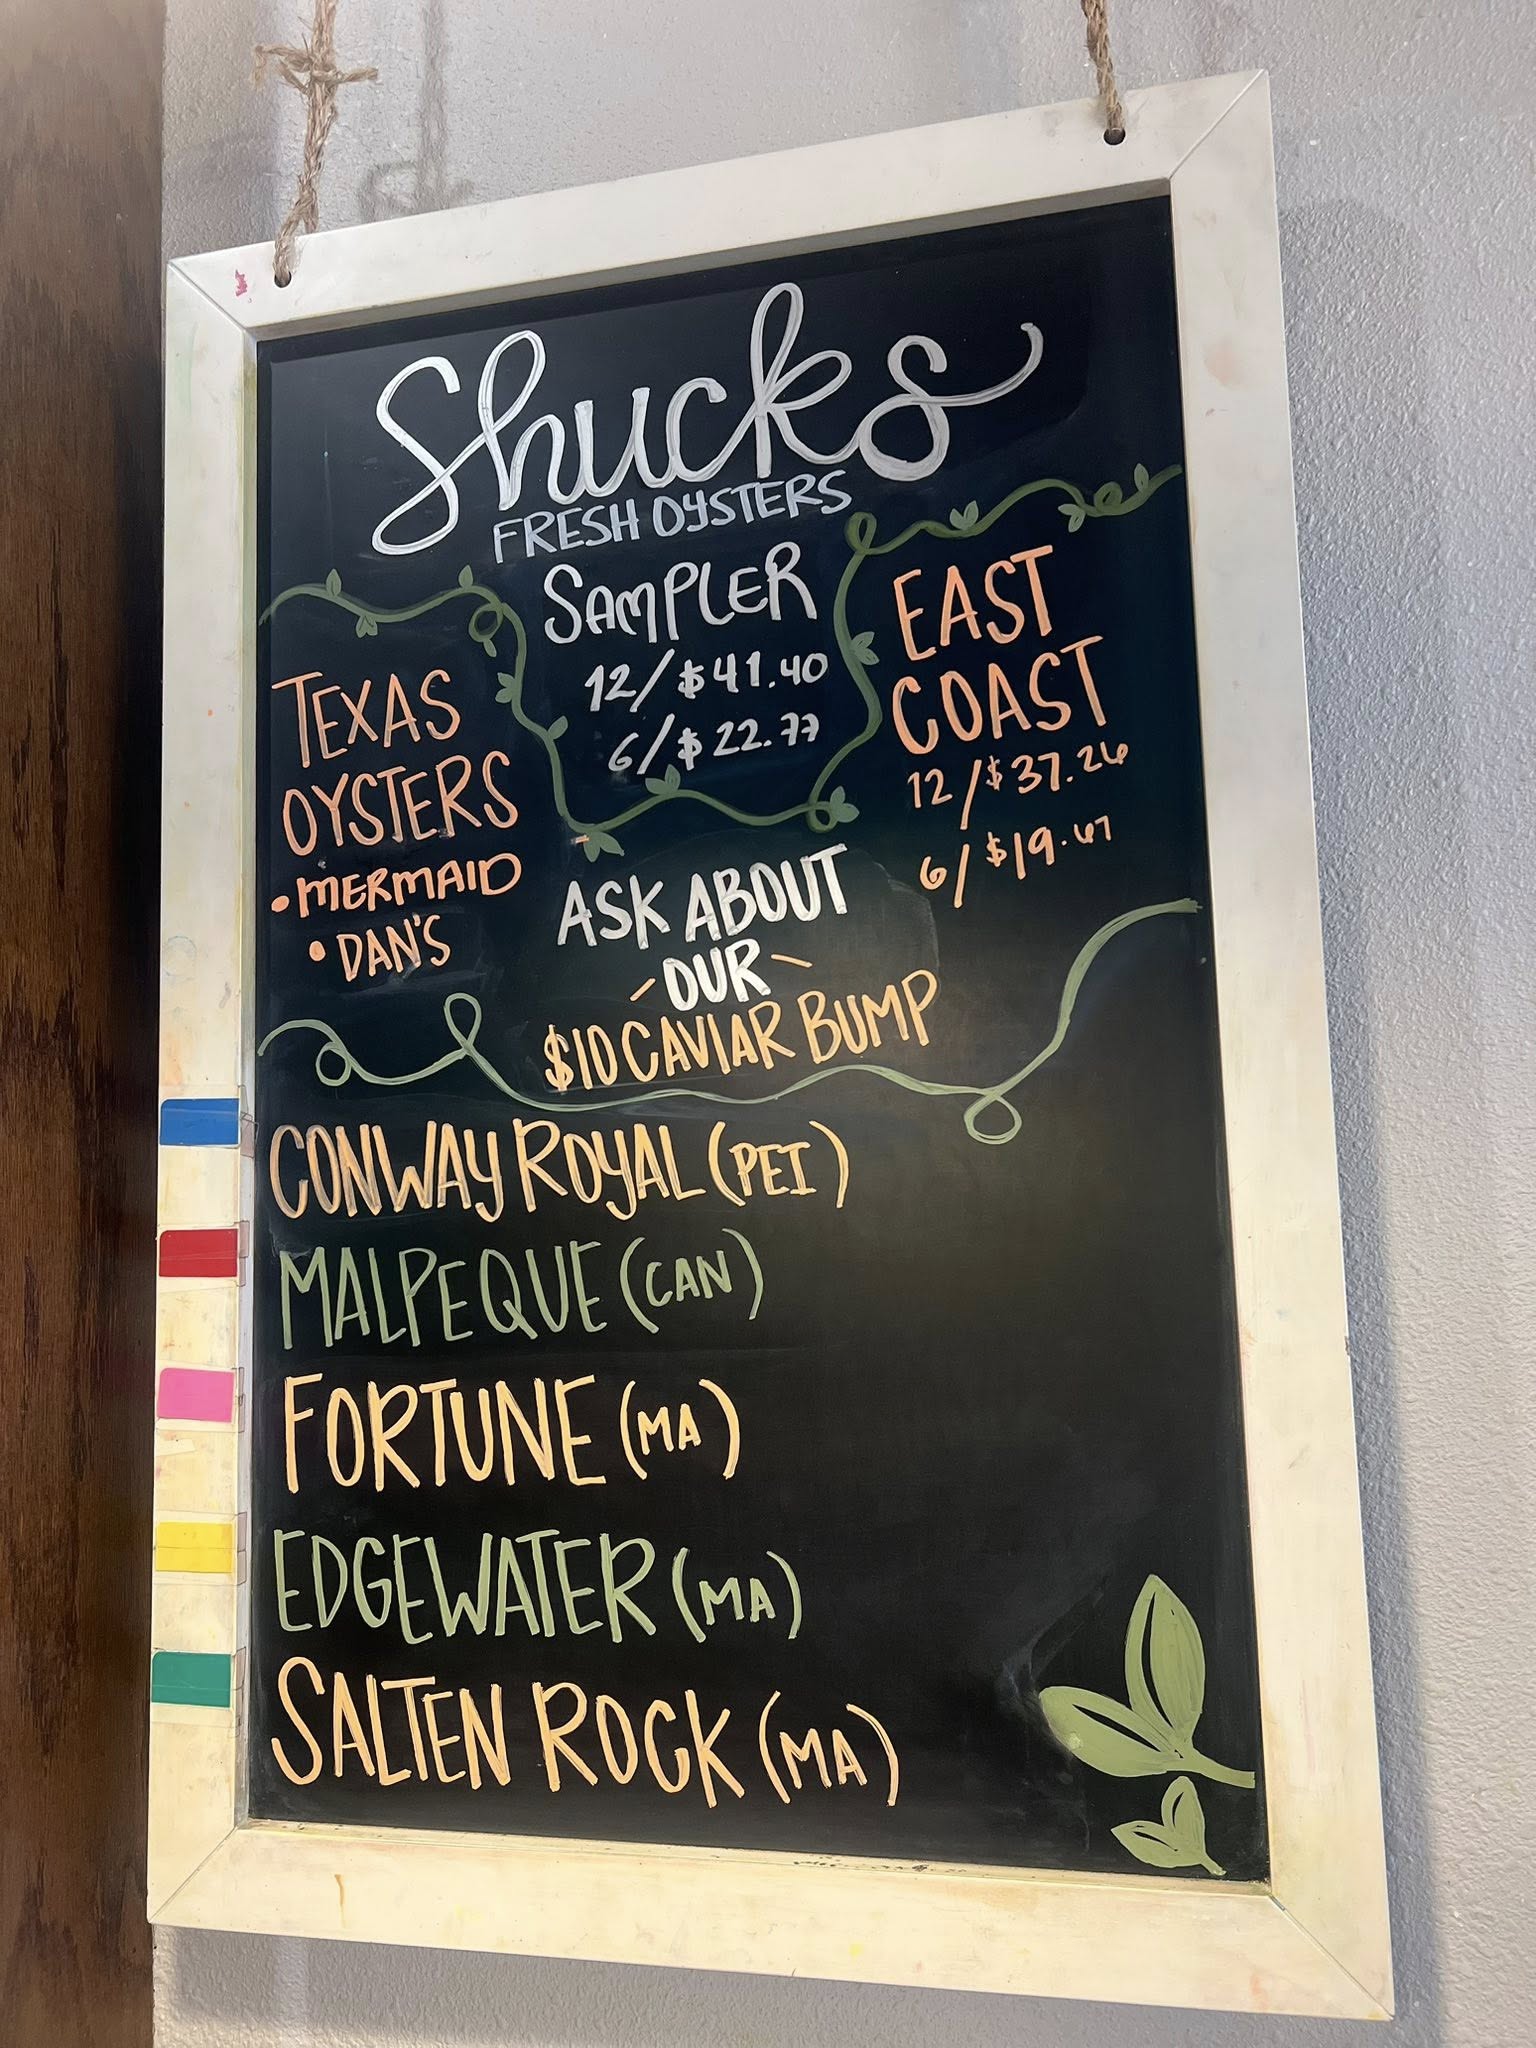 Shucks
FRESH OYSTERS
SAMPLER
12/$41.40
6/$22.77
TEXAS
OYSTERS
• MERMAID
• DAN'S
EAST
COAST
12/$37.26
6/$19.67
ASK ABOUT
OUR
$10 CAVIAR BUMP
CONWAY ROYAL (PEI)
MALPEQUE (CAN)
FORTUNE (MA)
EDGEWATER (MA)
SALTEN ROCK (MA)